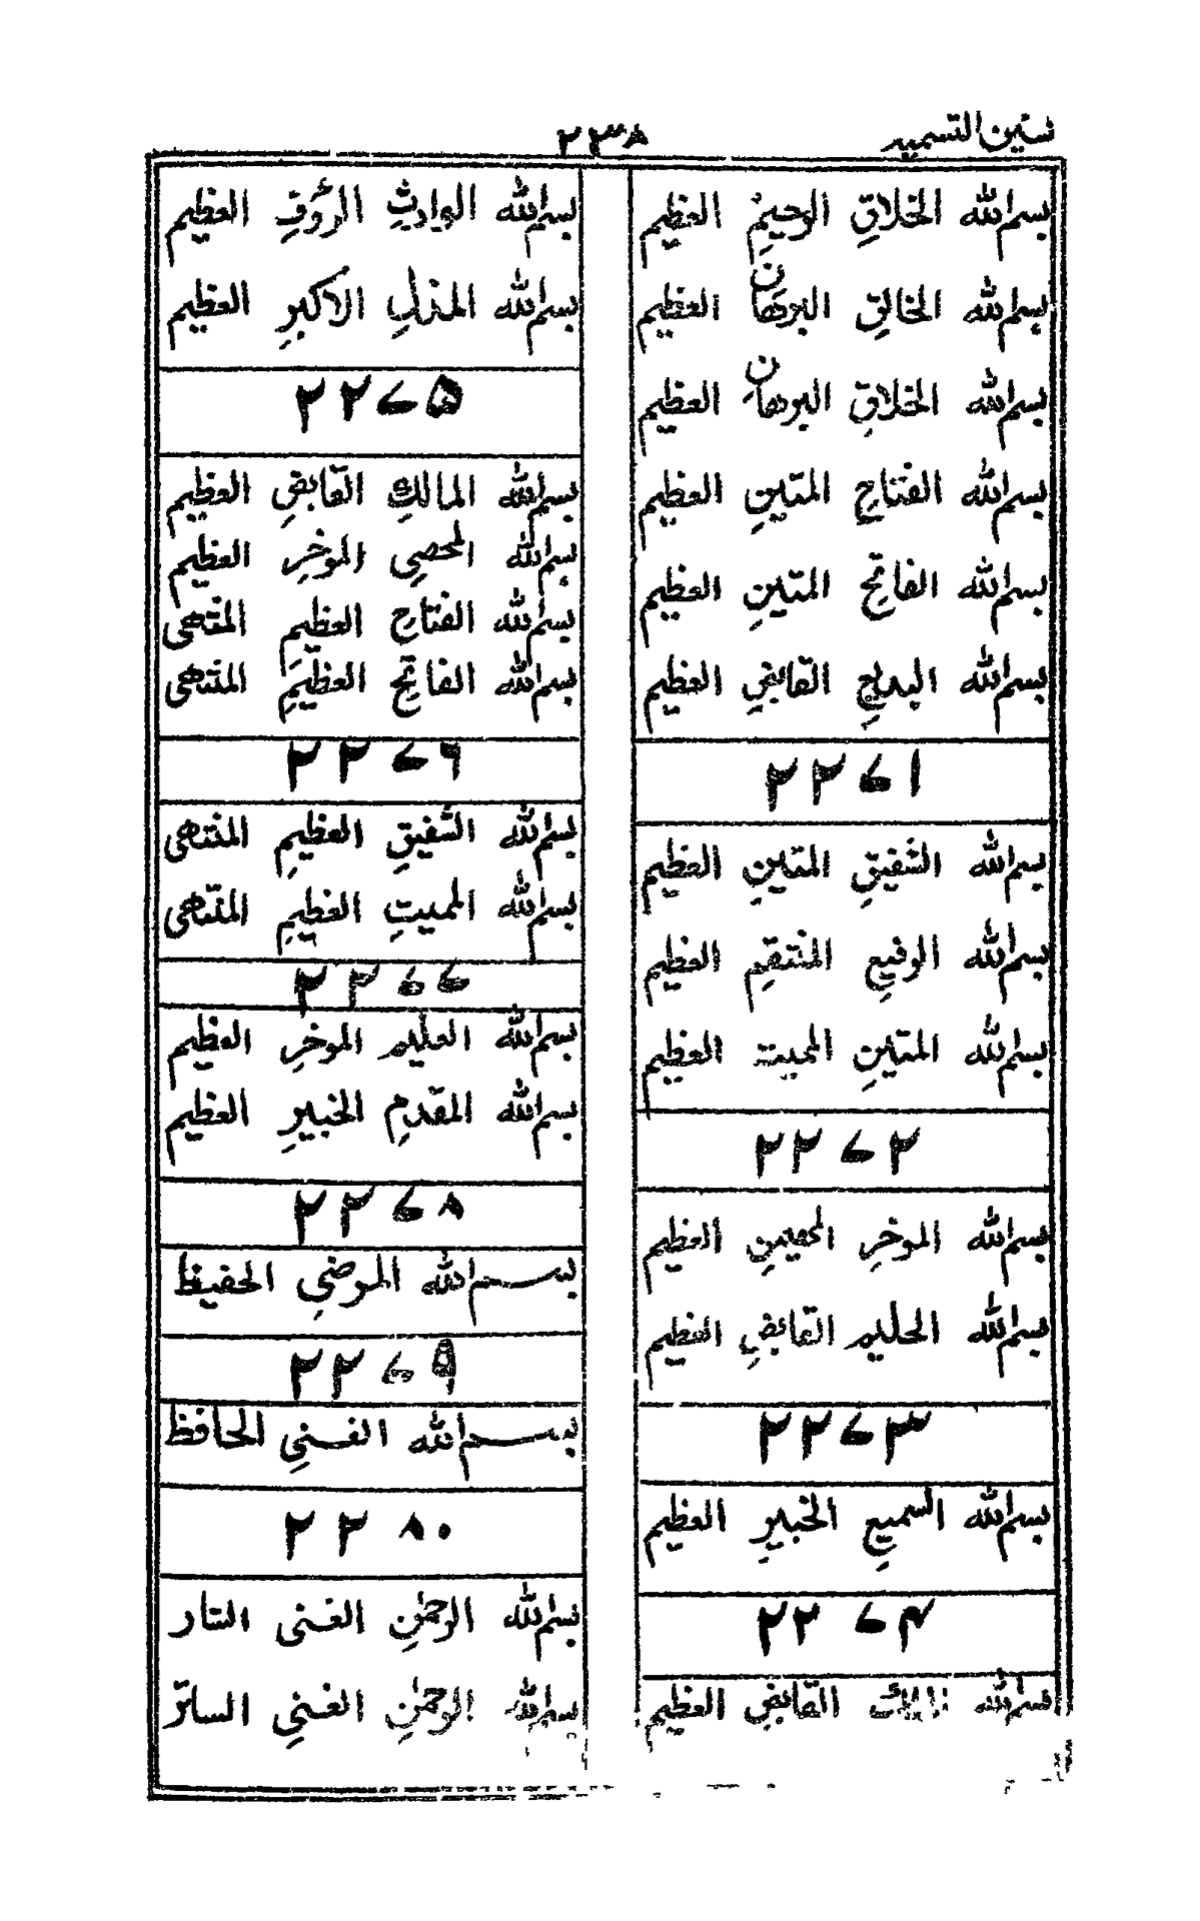 سنين التسميه
۲۳۸
بسم الله الخلاقِ الرحيمِ العظيم
بسم الله الخالقِ البرهانِ العظيم
بسم الله الخلاقِ البرهانِ العظيم
بسم الله الفتاحِ المتينِ العظيم
بسم الله الفاتحِ المتينِ العظيم
بسم الله البديعِ القابضِ العظيم
۲۲۷۱
بسم الله الشفيقِ المتينِ العظيم
بسم الله الرفيعِ المنتقمِ العظيم
بسم الله المتينِ المميت العظيم
۲۲۷۲
بسم الله الموخرِ العظيم
بسم الله الحليم القابضِ العظيم
۲۲۷۳
بسم الله السميعِ الخبيرِ العظيم
۲۲۷۴
بسم الله القابضِ العظيم
بسم الله الوارثِ الرؤفِ العظيم
بسم الله المنزلِ الاكبرِ العظيم
۲۲۷۵
بسم الله المالكِ القابضِ العظيم
بسم الله المحصى الموخرِ العظيم
بسم الله الفتاحِ العظيمِ المنتهى
بسم الله الفاتحِ العظيمِ المنتهى
۲۲۷۶
بسم الله الشفيقِ العظيمِ المنتهى
بسم الله المميتِ العظيمِ المنتهى
۲۲۷۷
بسم الله العليم الموخرِ العظيم
بسم الله المقدمِ الخبيرِ العظيم
۲۲۷۸
بسم الله المرضىِ الحفيظ
۲۲۷۹
بسم الله الغنىِ الحافظ
۲۲۸۰
بسم الله الرحمٰنِ الغنى الستار
بسم الله الرحمٰنِ الغنىِ الساتر